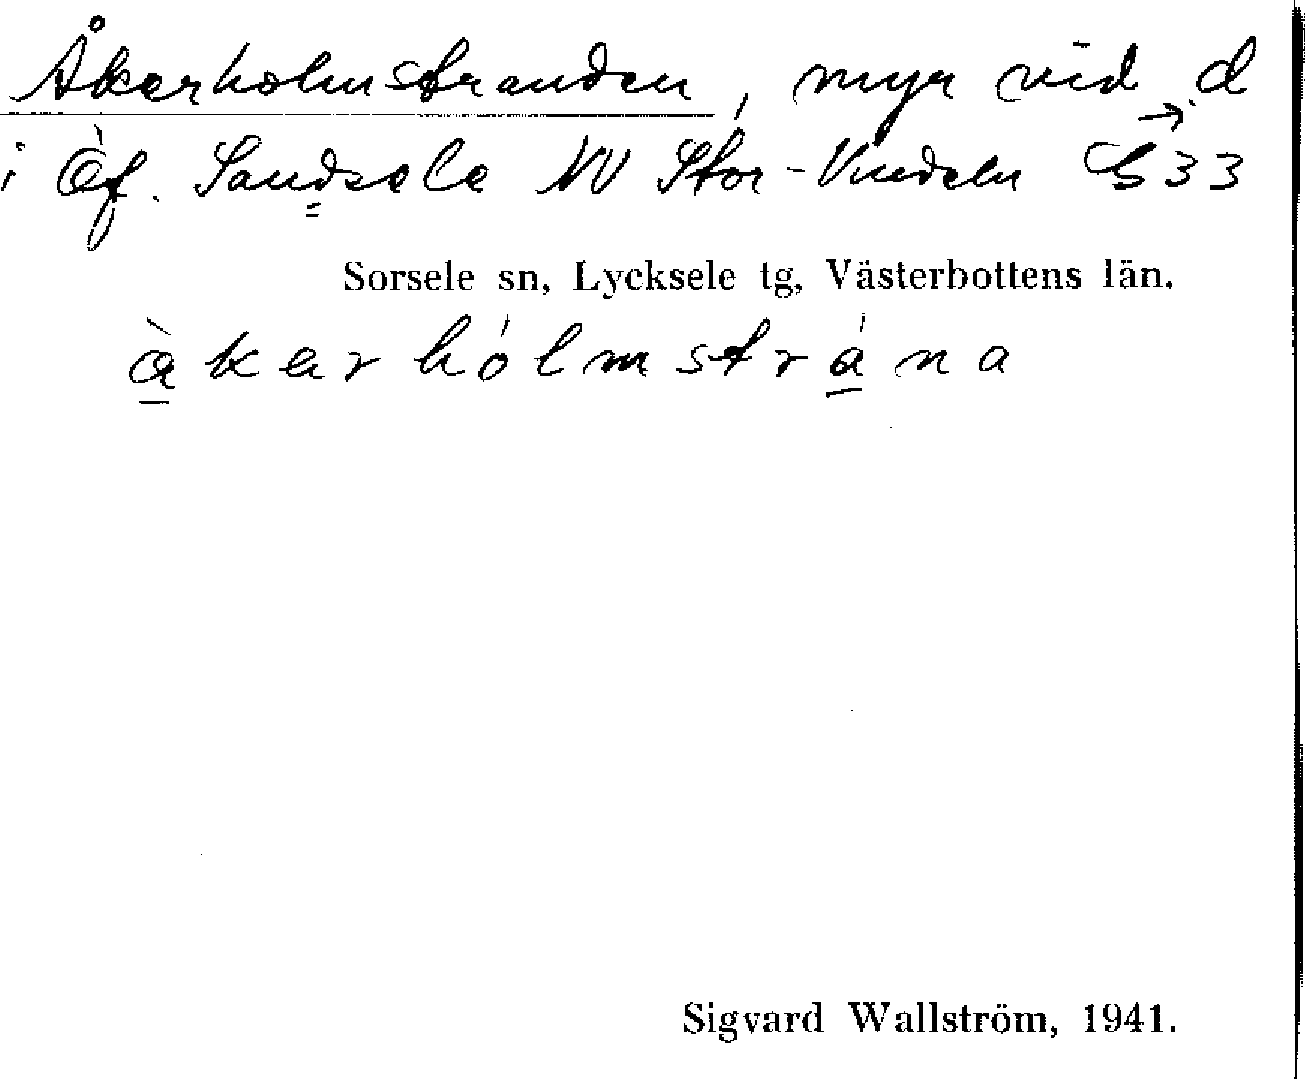 Åkerholmstranden, myr vid d
i Öf. Sandsele NV Stor-Vindeln 33
Sorsele sn, Lycksele tg, Västerbottens län.
àkerhólmstrána
Sigvard Wallström, 1941.